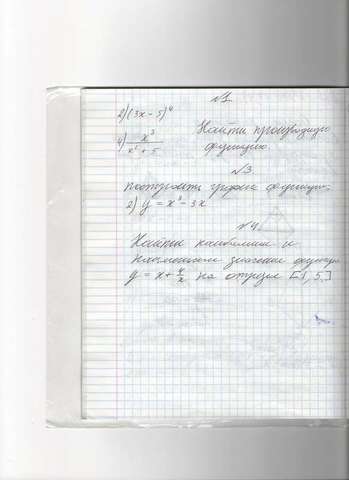 №1
2) (3x - 5)⁴
4) x³ / x² + 5 Найти производную
функции.
№3
построить график функции.
2) y = x³ - 3x
№4
Найти наибольшее и
наименьшее значение функции
y = x + 4/x на отрезке [1, 5]